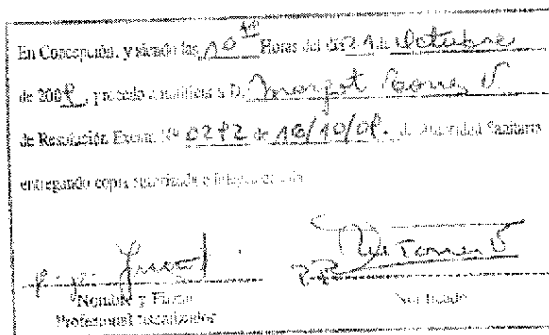 En Concepción, y siendo las 10 Horas del día 21 de Octubre
de 200 procedo a notificar a D. Margot Torres V.
de Resolución Exenta Nº 0282 de 16/10/08. de Autoridad Sanitaria
entregando copia autorizada e íntegra de
p.p. Torres V
Nombre y Firma Notificado
Profesional Notificador